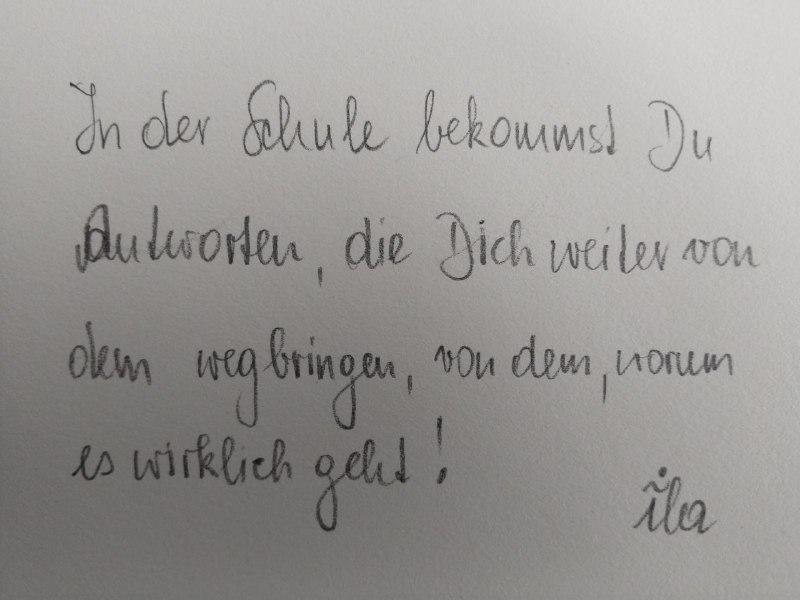 In der Schule bekommst Du
Antworten, die Dich weiter von
dem wegbringen, von dem, worum
es wirklich geht!
ila